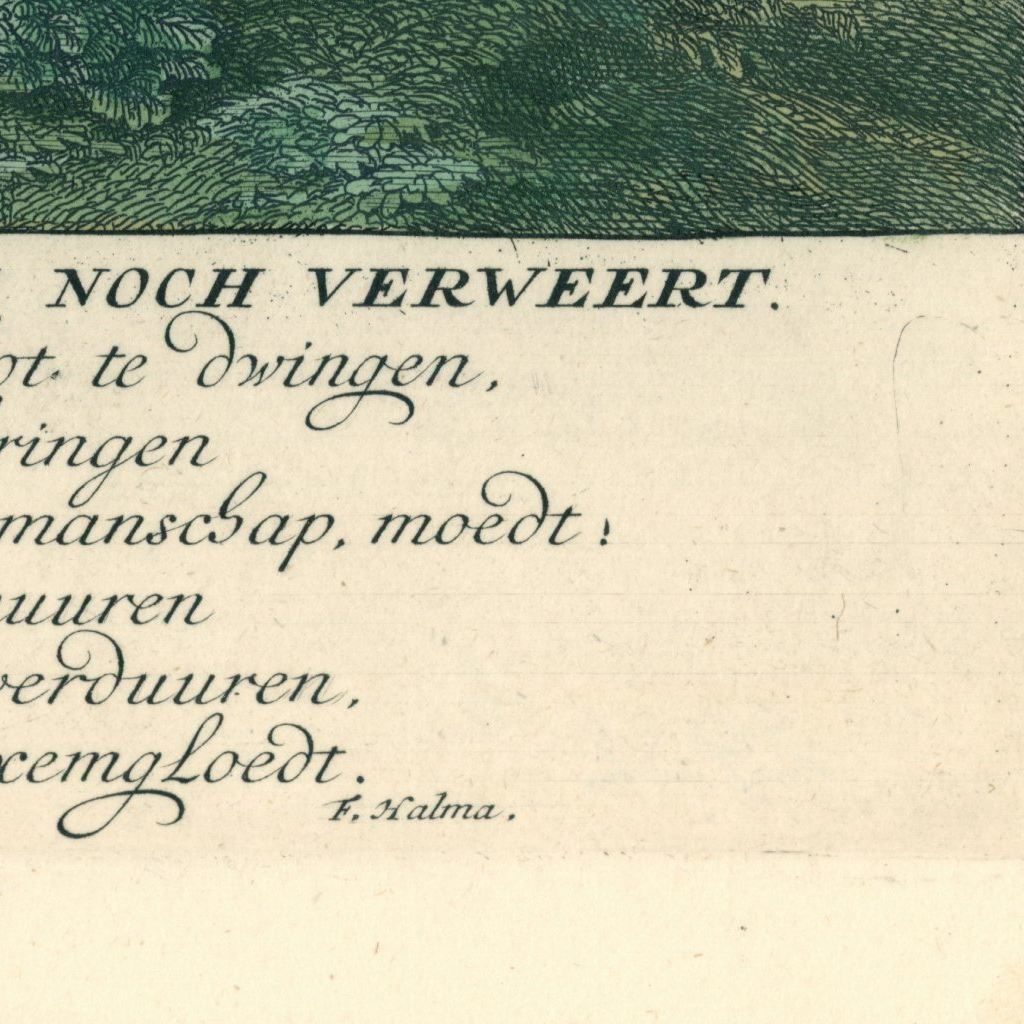 NOCH VERWEERT.
ot te dwingen,
ringen
manschap, moedt;
uuren
verduuren,
xemgloedt.
F. Halma.